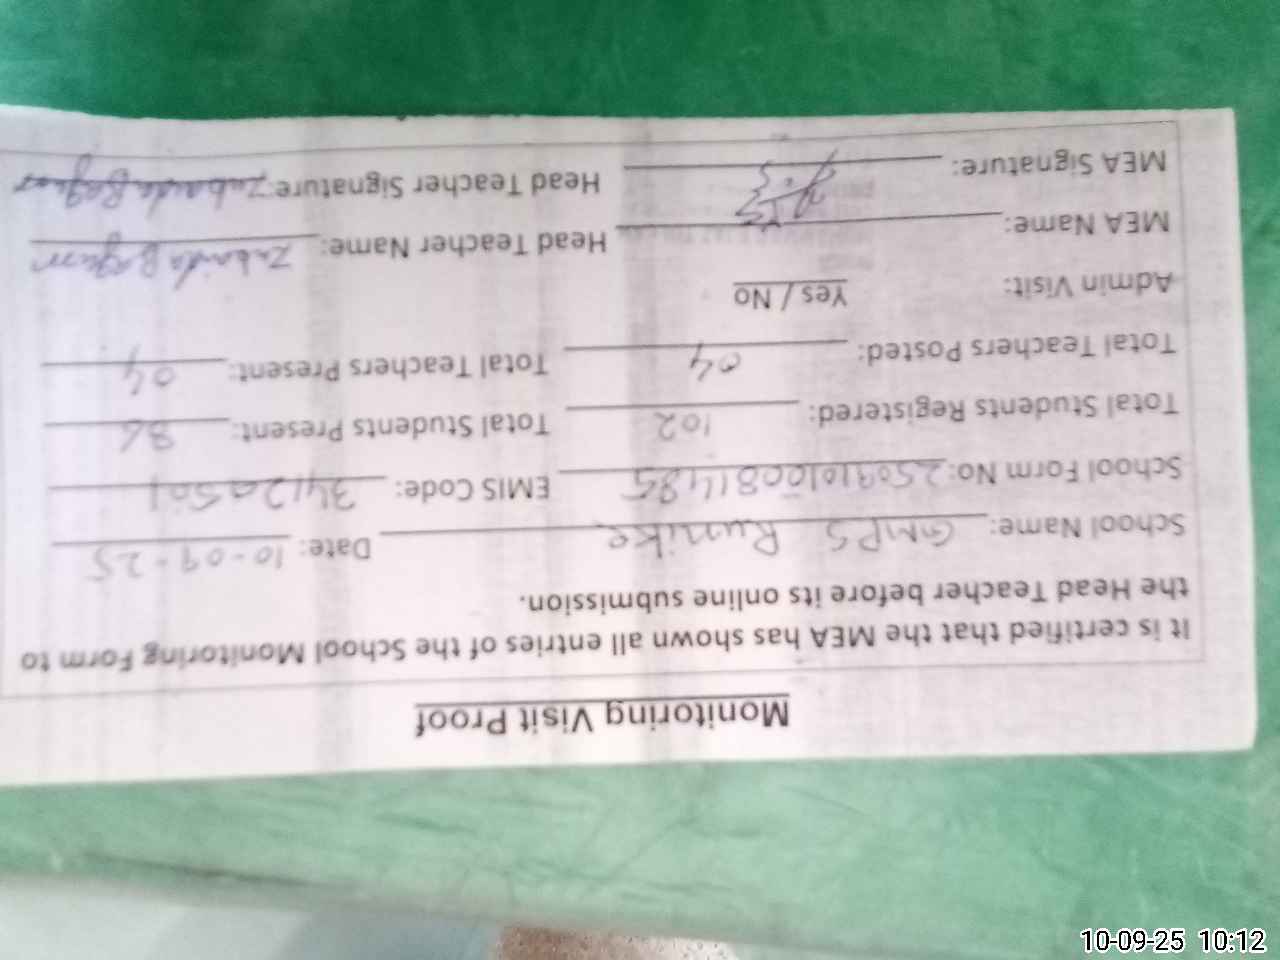 Monitoring Visit Proof
It is certified that the MEA has shown all entries of the School Monitoring Form to
the Head Teacher before its online submission.
School Name: GMPS Rurike Date: 10-09-25
School Form No: EMIS Code:
Total Students Registered: 102 Total Students Present: 86
Total Teachers Posted: 04 Total Teachers Present: 04
Admin Visit: Yes / No
MEA Name: Head Teacher Name: Zubaida Begum
MEA Signature: Head Teacher Signature: Zubaida Begum
10-09-25 10:12